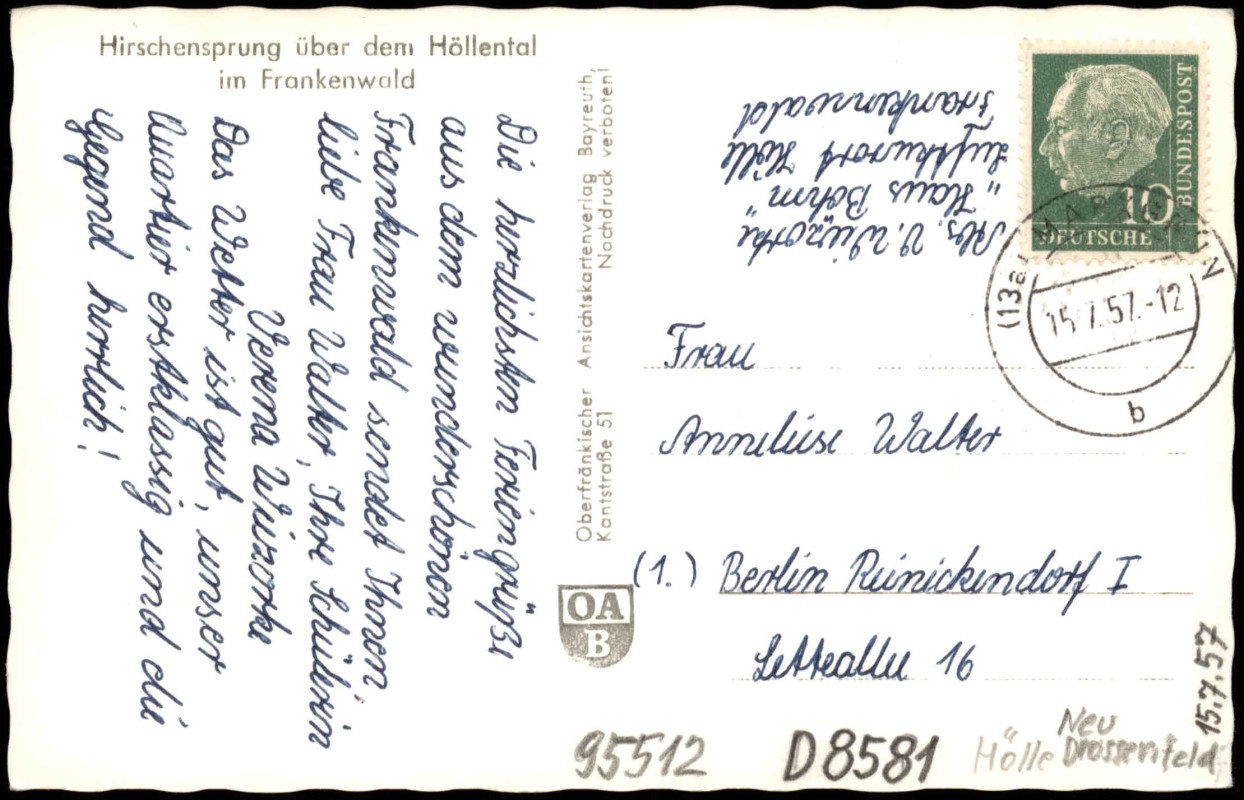 Hirschensprung über dem Höllental
im Frankenwald
Die herzlichsten Feriengrüße
aus dem wunderschönen
Frankenwald sendet Ihnen
liebe Frau Walter, Ihre Schülerin
Verena Wüzorke
Das Wetter ist gut, unser
Quartier erstklassig und die
Gegend herrlich!
Oberfränkischer Ansichtskartenverlag Bayreuth,
Kantstraße 51 Nachdruck verboten!
OA
B
Abs. V. Wüzorke
„Haus Böhm"
Luftkurort Hölle
Frankenwald
BUNDESPOST
10
DEUTSCHE
(13a)
15.7.57.-12
b
Frau
Anneliese Walter
(1.) Berlin Reinickendorf I
Letteallee 16
15.7.57
95512 D8581 Hölle Neu
Drossenfeld